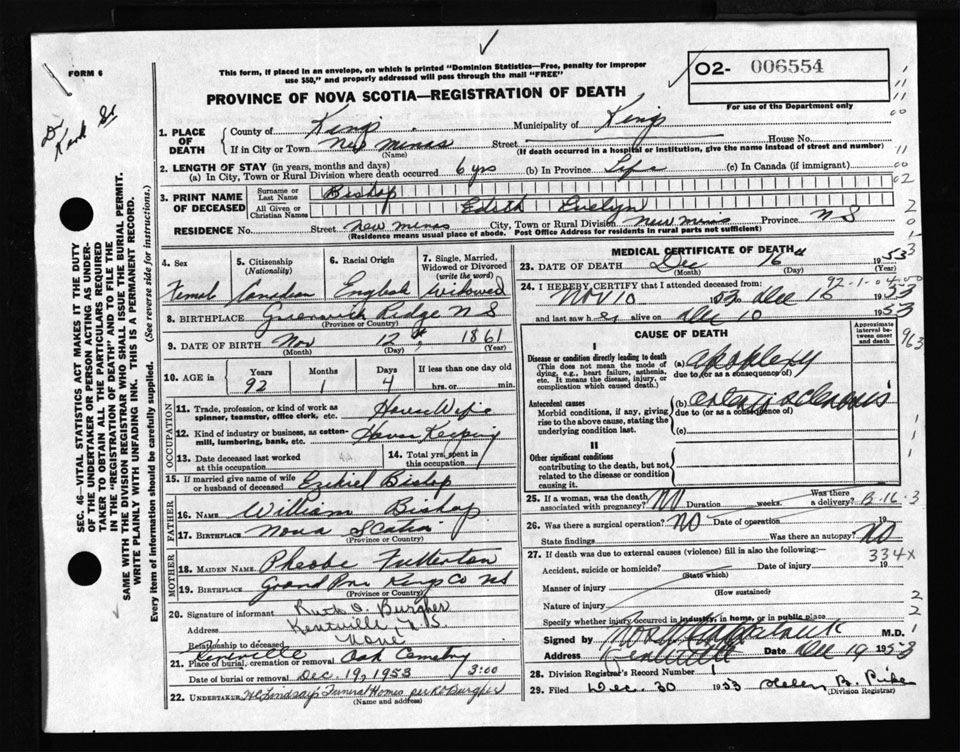 FORM 6
This form, if placed in an envelope, on which is printed "Dominion Statistics—Free, penalty for improper
use $50," and properly addressed will pass through the mail "FREE"
O2- 006554
For use of the Department only
PROVINCE OF NOVA SCOTIA—REGISTRATION OF DEATH
1. PLACE OF DEATH
County of Kings Municipality of Kings
If in City or Town New Minas Street House No.
(Name) (If death occurred in a hospital or institution, give the name instead of street and number)
2. LENGTH OF STAY (in years, months and days)
(a) In City, Town or Rural Division where death occurred 6 yrs (b) In Province Life (c) In Canada (if immigrant)
3. PRINT NAME OF DECEASED
Surname or Last Name Bishop
All Given or Christian Names Edith Evelyn
RESIDENCE No. Street New Minas City, Town or Rural Division New Minas Province N S
(Residence means usual place of abode. Post Office Address for residents in rural parts not sufficient)
4. Sex
Femal
5. Citizenship
(Nationality)
Canadian
6. Racial Origin
English
7. Single, Married,
Widowed or Divorced
(write the word)
Widowed
8. BIRTHPLACE Ridge N S
(Province or Country)
9. DATE OF BIRTH Nov 12th 1861
(Month) (Day) (Year)
10. AGE in
Years Months Days If less than one day
92 1 4 hrs. or min.
OCCUPATION
11. Trade, profession, or kind of work as
spinner, teamster, office clerk, etc. House Wife
12. Kind of industry or business, as cotton-
mill, lumbering, bank, etc. House Keeping
13. Date deceased last worked
at this occupation
14. Total yrs. spent in
this occupation
15. If married give name of wife
or husband of deceased Ezikiel Bishop
FATHER
16. NAME William Bishop
17. BIRTHPLACE Nova Scotia
(Province or Country)
MOTHER
18. MAIDEN NAME Pheobe Fullerton
19. BIRTHPLACE Grand Pre Kings Co NS
(Province or Country)
20. Signature of informant Ruth O. Burgher
Address Kentville N.S.
Relationship to deceased None
21. Place of burial, cremation or removal Oak Cemetry
Date of burial or removal Dec. 19, 1953 3:00
22. UNDERTAKER W C Lindsays Funeral Homes per R O Burgher
(Name and address)
MEDICAL CERTIFICATE OF DEATH
23. DATE OF DEATH Dec 16th 1953
(Month) (Day) (Year)
24. I HEREBY CERTIFY that I attended deceased from:
Nov 10 1953 Dec 16 1953
and last saw her alive on Dec 10 1953
CAUSE OF DEATH
Approximate
interval be-
tween onset
and death
I
Disease or condition directly leading to death
(This does not mean the mode of
dying, e.g., heart failure, asthenia,
etc. It means the disease, injury, or
complication which caused death.)
(a) apoplexy
due to (or as a consequence of)
Antecedent causes
Morbid conditions, if any, giving
rise to the above cause, stating the
underlying condition last.
(b)
due to (or as a consequence of)
(c)
II
Other significant conditions
contributing to the death, but not
related to the disease or condition
causing it.
25. If a woman, was the death
associated with pregnancy? NO Duration weeks. Was there a delivery?
26. Was there a surgical operation? NO Date of operation 19
State findings Was there an autopsy? NO
27. If death was due to external causes (violence) fill in also the following:—
Accident, suicide or homicide? Date of injury 19
(State which)
Manner of injury
(How sustained)
Nature of injury
Specify whether injury occurred in industry, in home, or in public place
Signed by M.D.
Address Kentville Date Dec 19 1953
28. Division Registrar's Record Number
29. Filed Dec. 30 1953 Helen B. Pike
(Division Registrar)
334X
SEC. 46—VITAL STATISTICS ACT MAKES IT THE DUTY
OF THE UNDERTAKER OR PERSON ACTING AS UNDER-
TAKER TO OBTAIN ALL THE PARTICULARS REQUIRED
IN THE "REGISTRATION OF DEATH" AND TO FILE THE
SAME WITH THE DIVISION REGISTRAR WHO SHALL ISSUE THE BURIAL PERMIT.
WRITE PLAINLY WITH UNFADING INK. THIS IS A PERMANENT RECORD.
Every item of information should be carefully supplied. (See reverse side for instructions.)